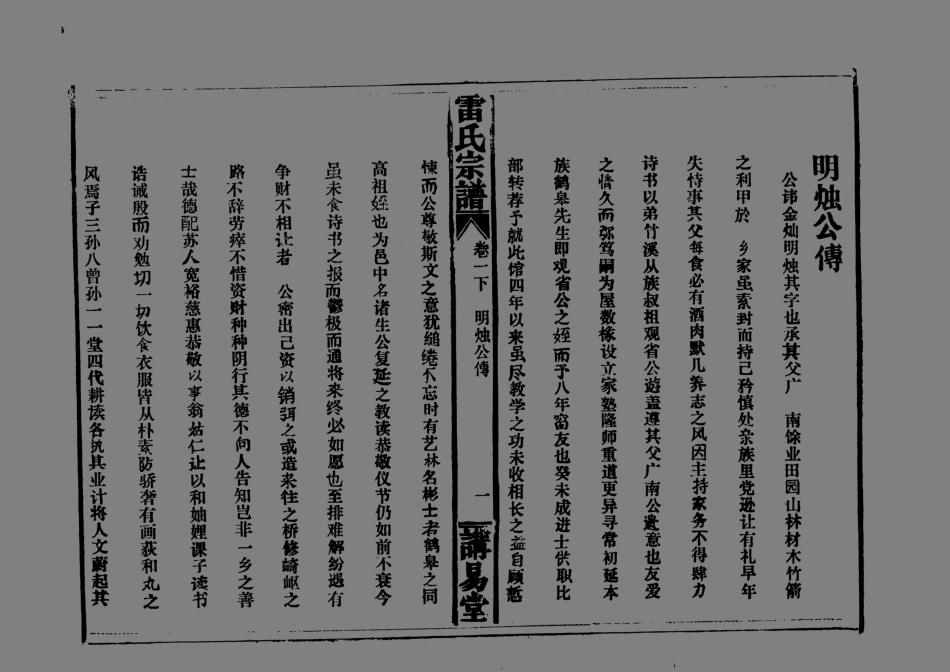 明烛公傳
公讳金灿明烛其字也承其父广 南馀业田园山林材木竹箭
之利甲於 乡家虽素封而持己矜慎处亲族里党逊让有礼早年
失恃事其父每食必有酒肉默几养志之风因主持家务不得肆力
诗书以弟竹溪从族叔祖观省公遊盖遵其父广南公遗意也友爱
之情久而弥笃嗣为屋数椽设立家塾隆师重道更异寻常初延本
族鹤皋先生即观省公之姪而予八年窗友也癸未成进士供职比
部转荐予就此馆四年以来虽尽教学之功未收相长之益自顾惭
雷氏宗譜
卷一下 明烛公傳
一
講易堂
悚而公尊敬斯文之意犹缱绻不忘时有艺林名彬士者鹤皋之同
高祖姪也为邑中名诸生公复延之教读恭敬仪节仍如前不衰今
虽未食诗书之报而鬱极而通将来终必如愿也至排难解纷遇有
争财不相让者 公密出己资以销弭之或造来往之桥修崎岖之
路不辞劳瘁不惜资财种种阴行其德不向人告知岂非一乡之善
士哉德配苏人宽裕慈惠恭敬以事翁姑仁让以和妯娌课子读书
诰诫殷而劝勉切一切饮食衣服皆从朴素防骄奢有画荻和丸之
风焉子三孙八曾孙一一堂四代耕读各执其业计将人文蔚起其